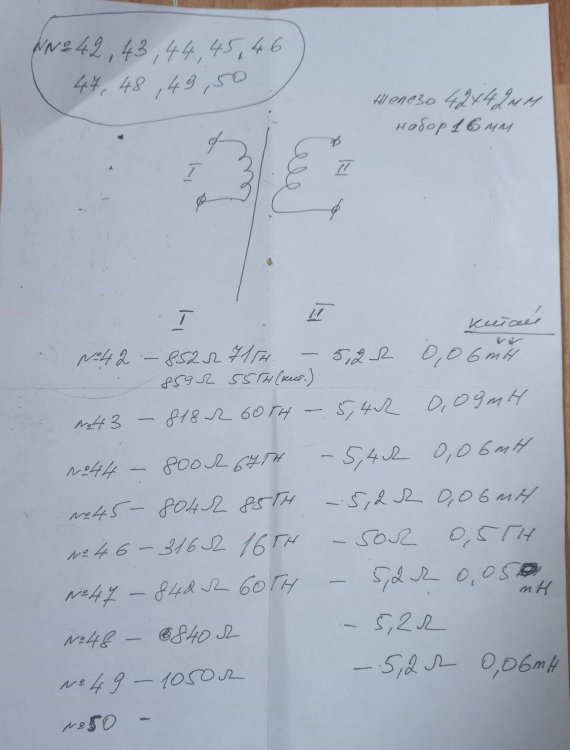 №№42, 43, 44, 45, 46
47, 48, 49, 50
железо 42x42мм
набор 16мм
I II
I II китай
№42 – 852Ω 71Гн – 5,2Ω 0,06mH
859Ω 55Гн(кит.)
№43 – 818Ω 60Гн – 5,4Ω 0,09mH
№44 – 800Ω 67Гн – 5,4Ω 0,06mH
№45 – 804Ω 85Гн – 5,2Ω 0,06mH
№46 – 316Ω 16Гн – 50Ω 0,5Гн
№47 – 842Ω 60Гн – 5,2Ω 0,05 mH
№48 – 840Ω – 5,2Ω
№49 – 1050Ω – 5,2Ω 0,06mH
№50 –